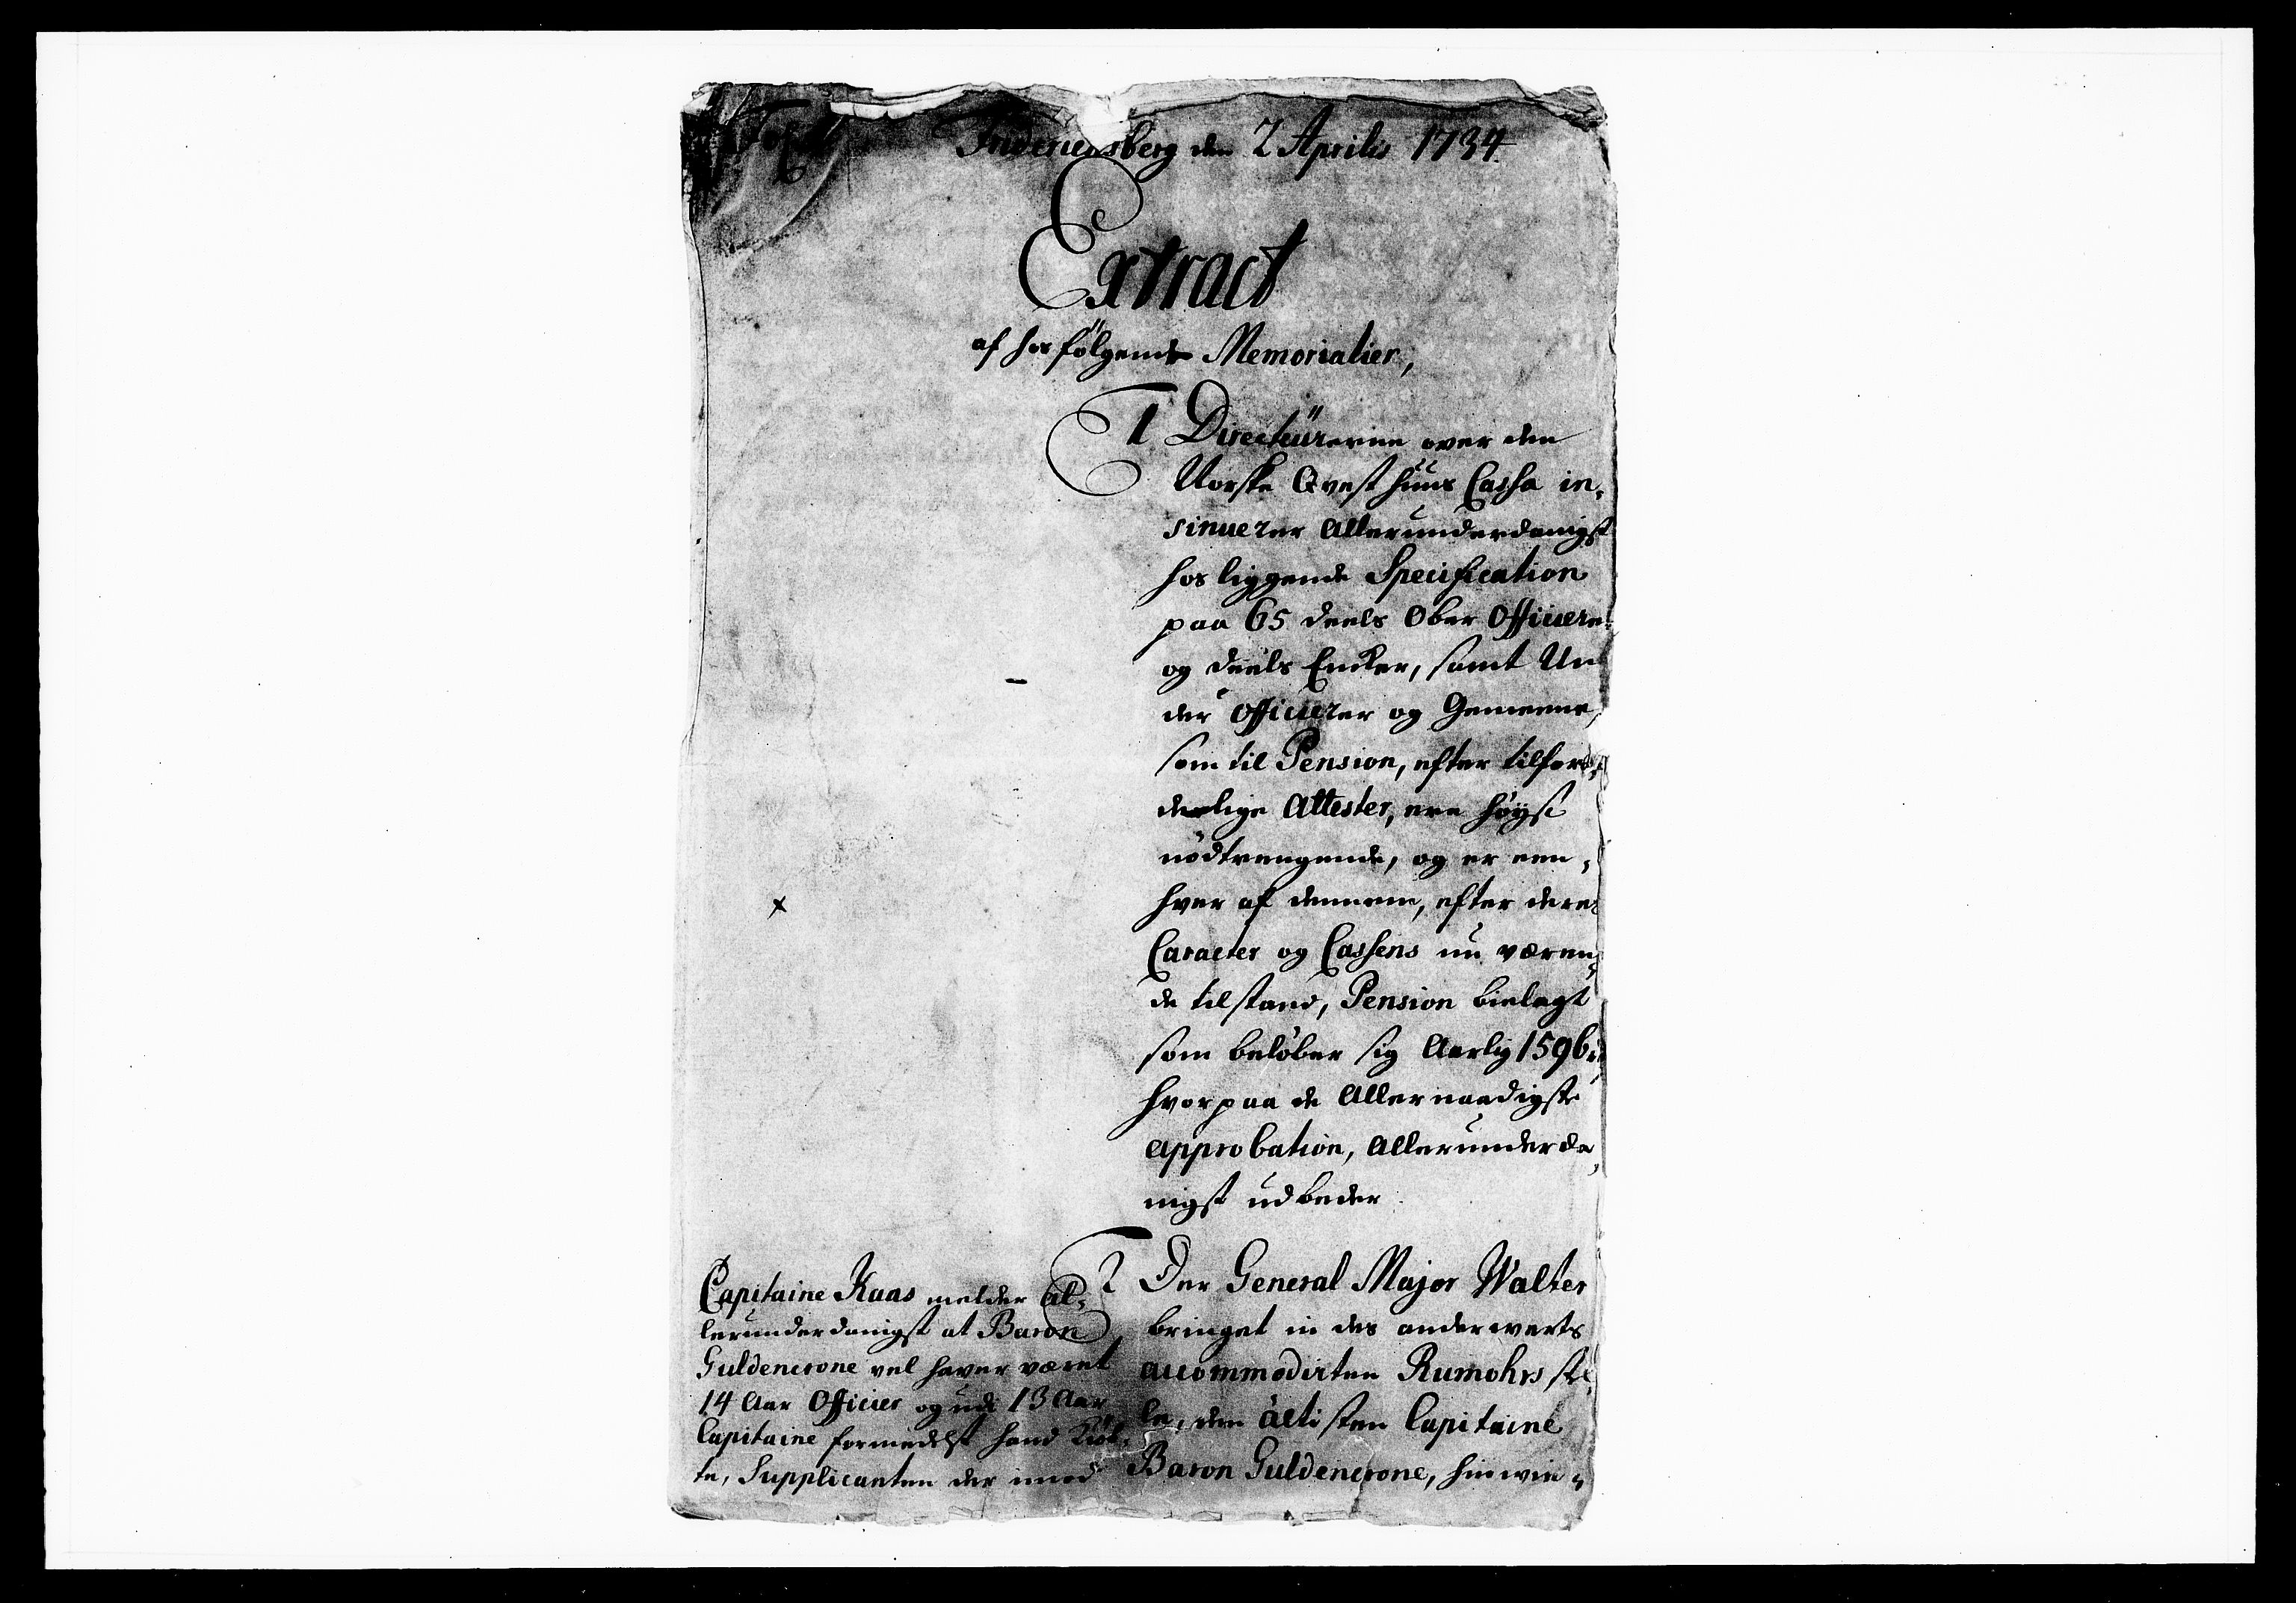 Fridericsberg den 2 Aprilis 1734
Extract
af hosfölgende Memorialier,
1 Directeürerne over den
Norske Qvesthuus Cassa in,
sinuerer Allerunderdanigst
hosliggende Specification
paa 65 deels Ober Officiere
og deels Encker, samt Un
der Officierer og Gemeene,
som til Pension, efter tilfor
derlige Attester, ere høyst
nödtrengende, og er een,
hver af dennem, efter deres
Caracter og Cassens nu væren,
de tilstand, Pension bielagt
som belöber sig Aarlig 1596
hvorpaa de Allernaadigste
approbation, Allerunderda,
nigst udbeder
2 Der General Major Walter
bringet in des anderwerts
accommodirten Rumohrs stel
le, den ältisten Capitaine
Baron Guldencrone, hinwie,
Capitaine Kaas melder al,
lerunderdanigst at Baron
Guldencrone vel haver været
14 Aar Officier og udi 13 Aar
Capitaine formedelst hand Kiöb,
te, Supplicanten der imod